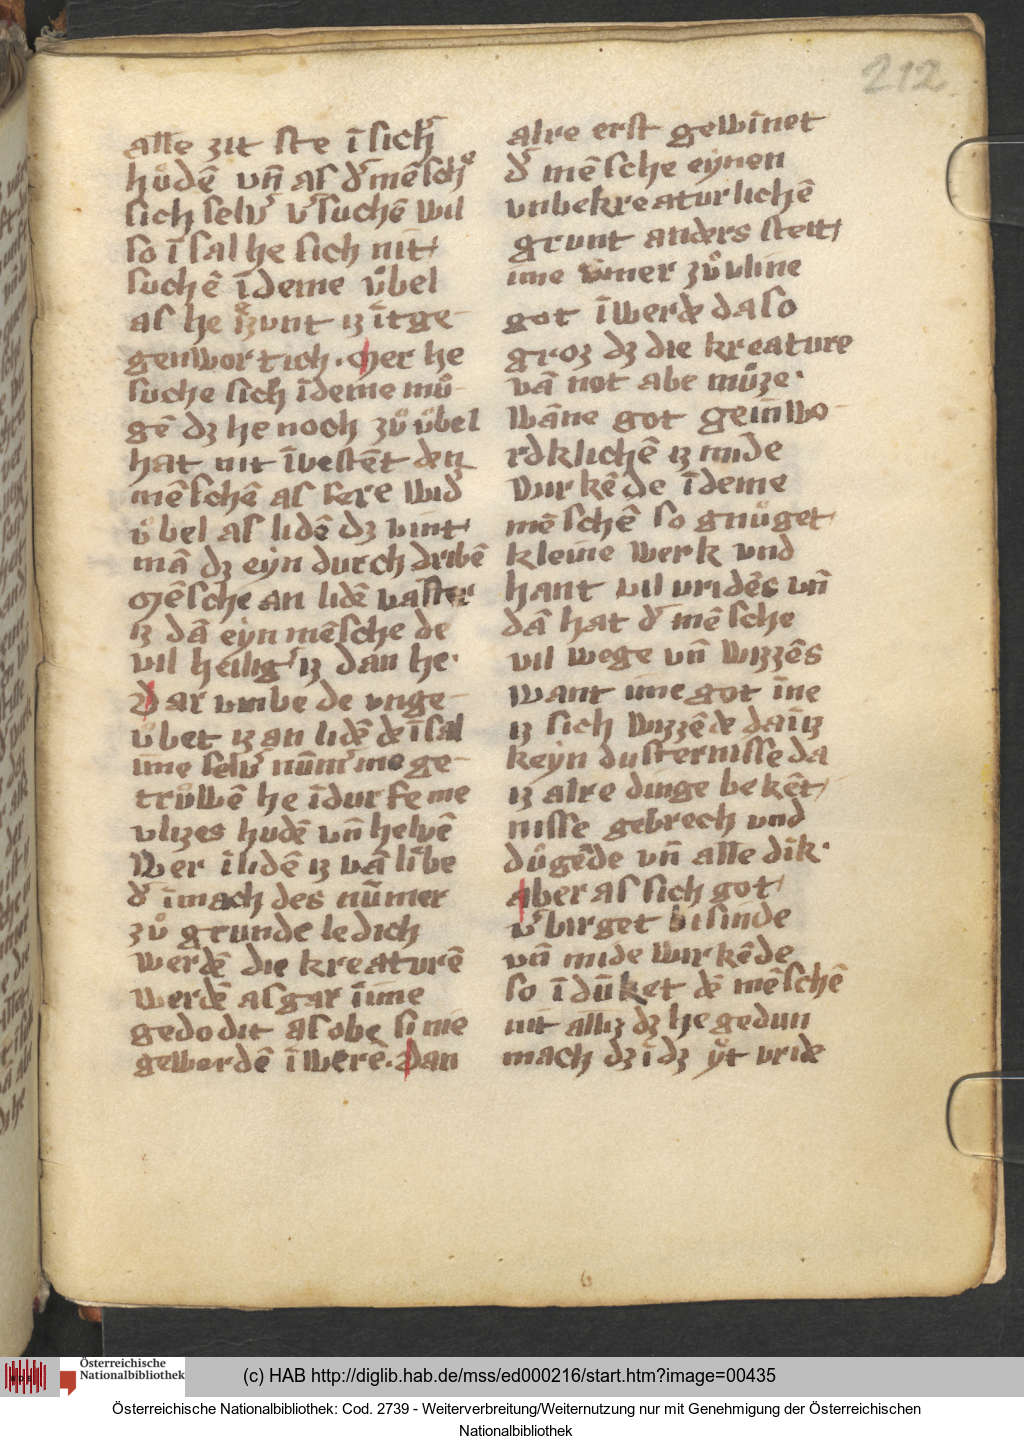 212
alle zit ste ī sich
hůdē vn̄ as d̓ mēsch
sich selv̓ v̓suchē wil
so ī sal he sich nit
suchē īdeme v̊bel
as he zvnt iz īt ge
genwortich. Mer he
suche sich īdeme mů
gē dz he noch zů v̊bel
hat nit īvestēt den
mēschē as sere wid̓
v̊bel as lidē dz vint
mā dz eyn durch dribē
Mēsche an lidē vaster
iz dā eyn mēsche de
vil heilig̓ iz dan he.
Dar vmbe de vnge
v̊bet iz an lidē de ī sal
ime selv̓ nūm̓me ge
trůwē he īdurfeme
vlizes hudē vn̄ helvē
Wer ī lidē iz vā libe
d̓ ī mach des nūmer
zů grunde ledich
werdē die kreaturē
werdē as gar ī ime
gedodit as obe si nie
gewordē ī were. Dan
alre erst gewīnet
d̓ mēsche eynen
vnbekreaturlichē
grunt anders steit
ime vmer zů vline
got ī werde da so
groz dz die kreature
vā not abe můze.
Wāne got geinwo
rdklichē iz mīde
Wurkēde īdeme
mēschē so gnůget
kleine werk vnd
hant vil vridēs vn̄
dā hat d̓ mēsche
vil wege vn̄ wizzēs
want ime got īne
iz sich wizzēde da ī iz
keyn dusternisse da
iz alre dinge bekēt
nisse gebrech vnd
důgēde vn̄ alle dīk.
Aber as sich got
v̓birget bisinde
vn̄ mide wirkēde
so ī dūket dē mēschē
nit alliz dz he gedun
mach dz ī dz yt vride
6
Österreichische
Nationalbibliothek
(c) HAB http://diglib.hab.de/mss/ed000216/start.htm?image=00435
Österreichische Nationalbibliothek: Cod. 2739 - Weiterverbreitung/Weiternutzung nur mit Genehmigung der Österreichischen
Nationalbibliothek